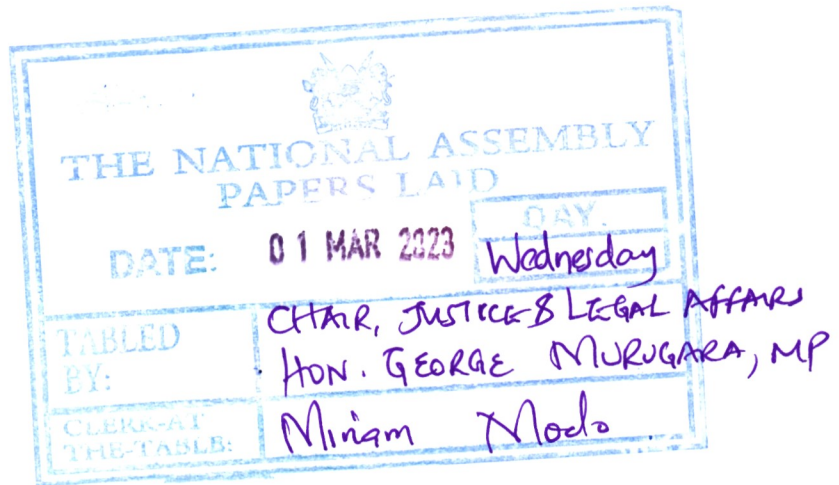 THE NATIONAL ASSEMBLY
PAPERS LAID
DATE: 01 MAR 2023
DAY.
Wednesday
TABLED BY: CHAIR, JUSTICE & LEGAL AFFAIRS
HON. GEORGE MURUGARA, MP
CLERK-AT THE-TABLE: Miriam Modo